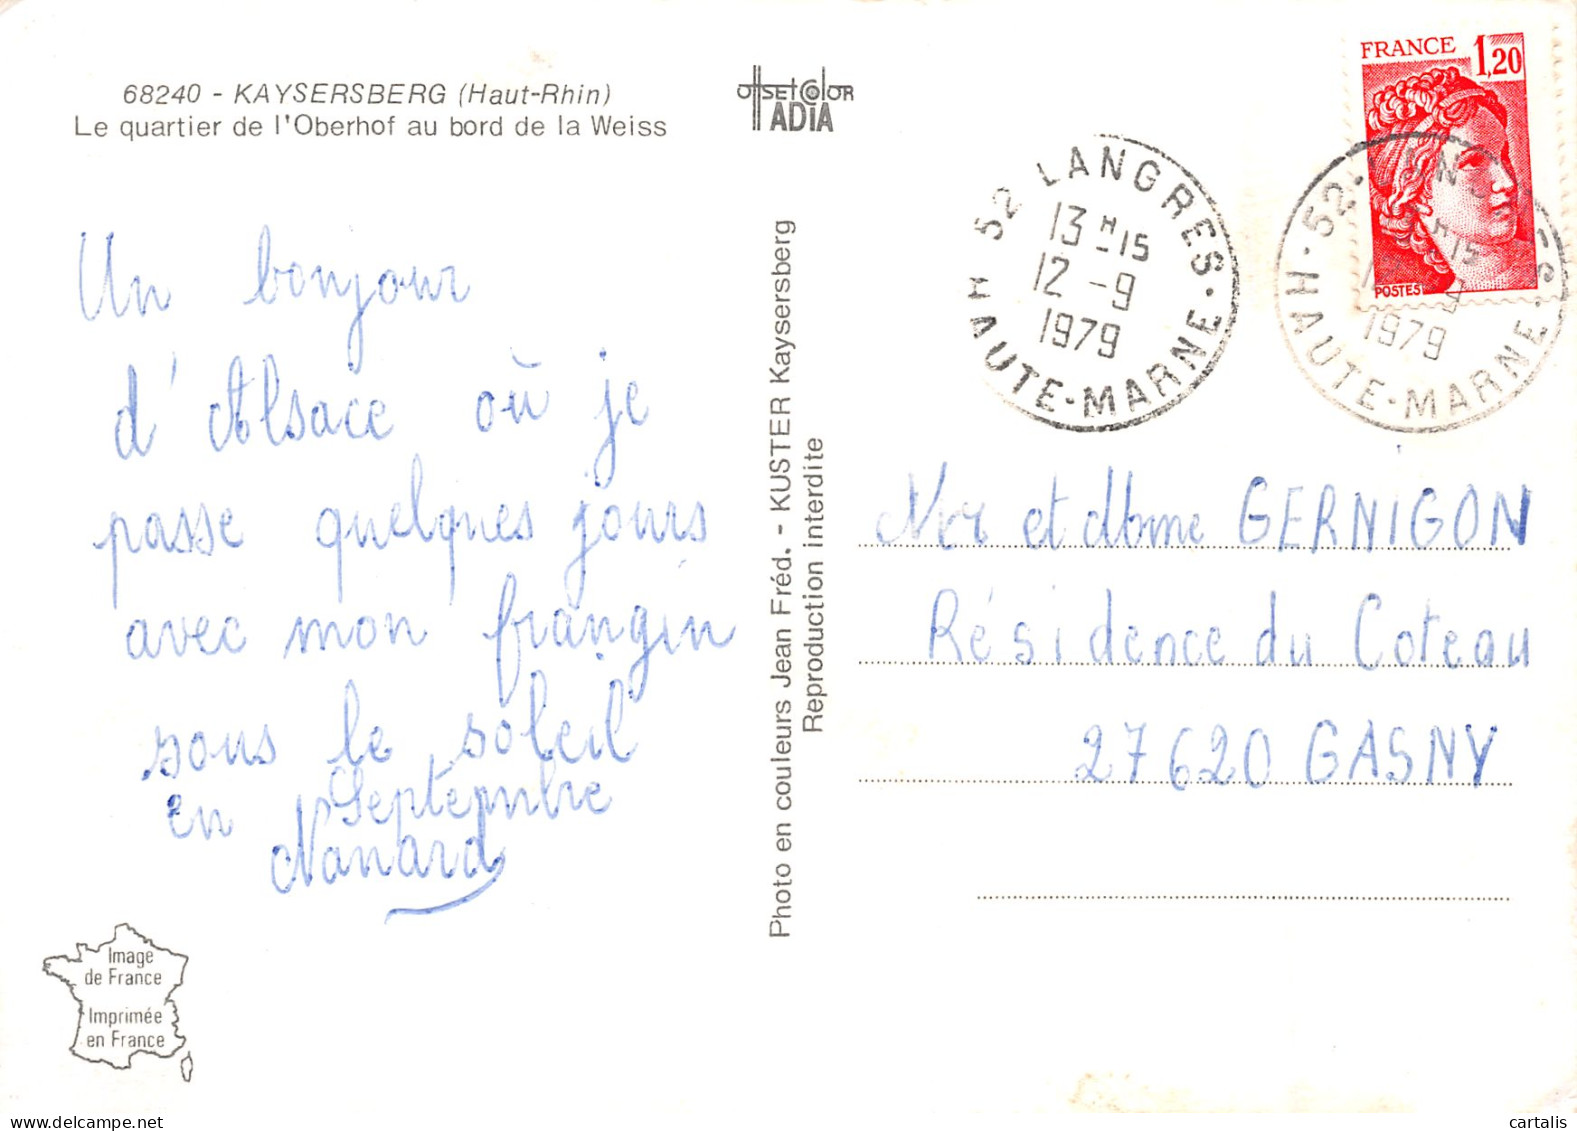 68240 - KAYSERSBERG (Haut-Rhin)
Le quartier de l'Oberhof au bord de la Weiss
Un bonjour
d'Alsace où je
passe quelques jours
avec mon frangin
sous le soleil
en Septembre
Nanard
Image
de France
Imprimée
en France
offset color
ADIA
Photo en couleurs Jean Fréd. - KUSTER Kaysersberg
Reproduction interdite
FRANCE 1,20
POSTES
52 LANGRES
13 H 15
12 - 9
1979
HAUTE-MARNE
52 LANGRES
H 15
9
1979
HAUTE-MARNE
Mr et Mme GERNIGON
Résidence du Coteau
27620 GASNY
cartalis